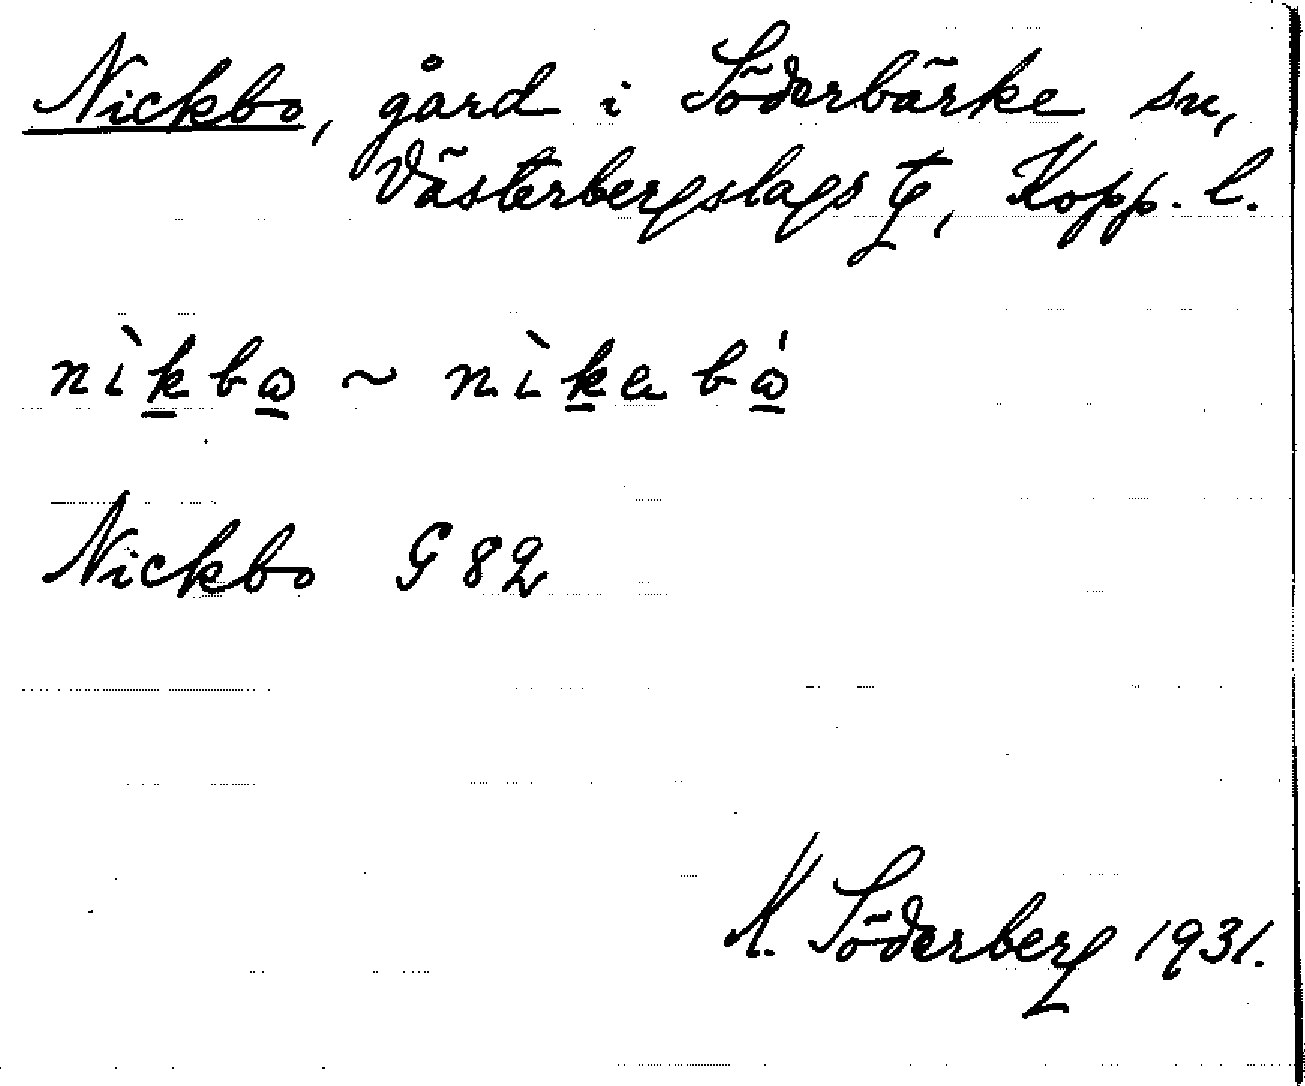 Nickbo, gård i Söderbärke sn,
Västerbergslags tg, Kopp. l.
nìkbω ~ nìkabώ
Nickbo G 82
M. Söderberg 1931.